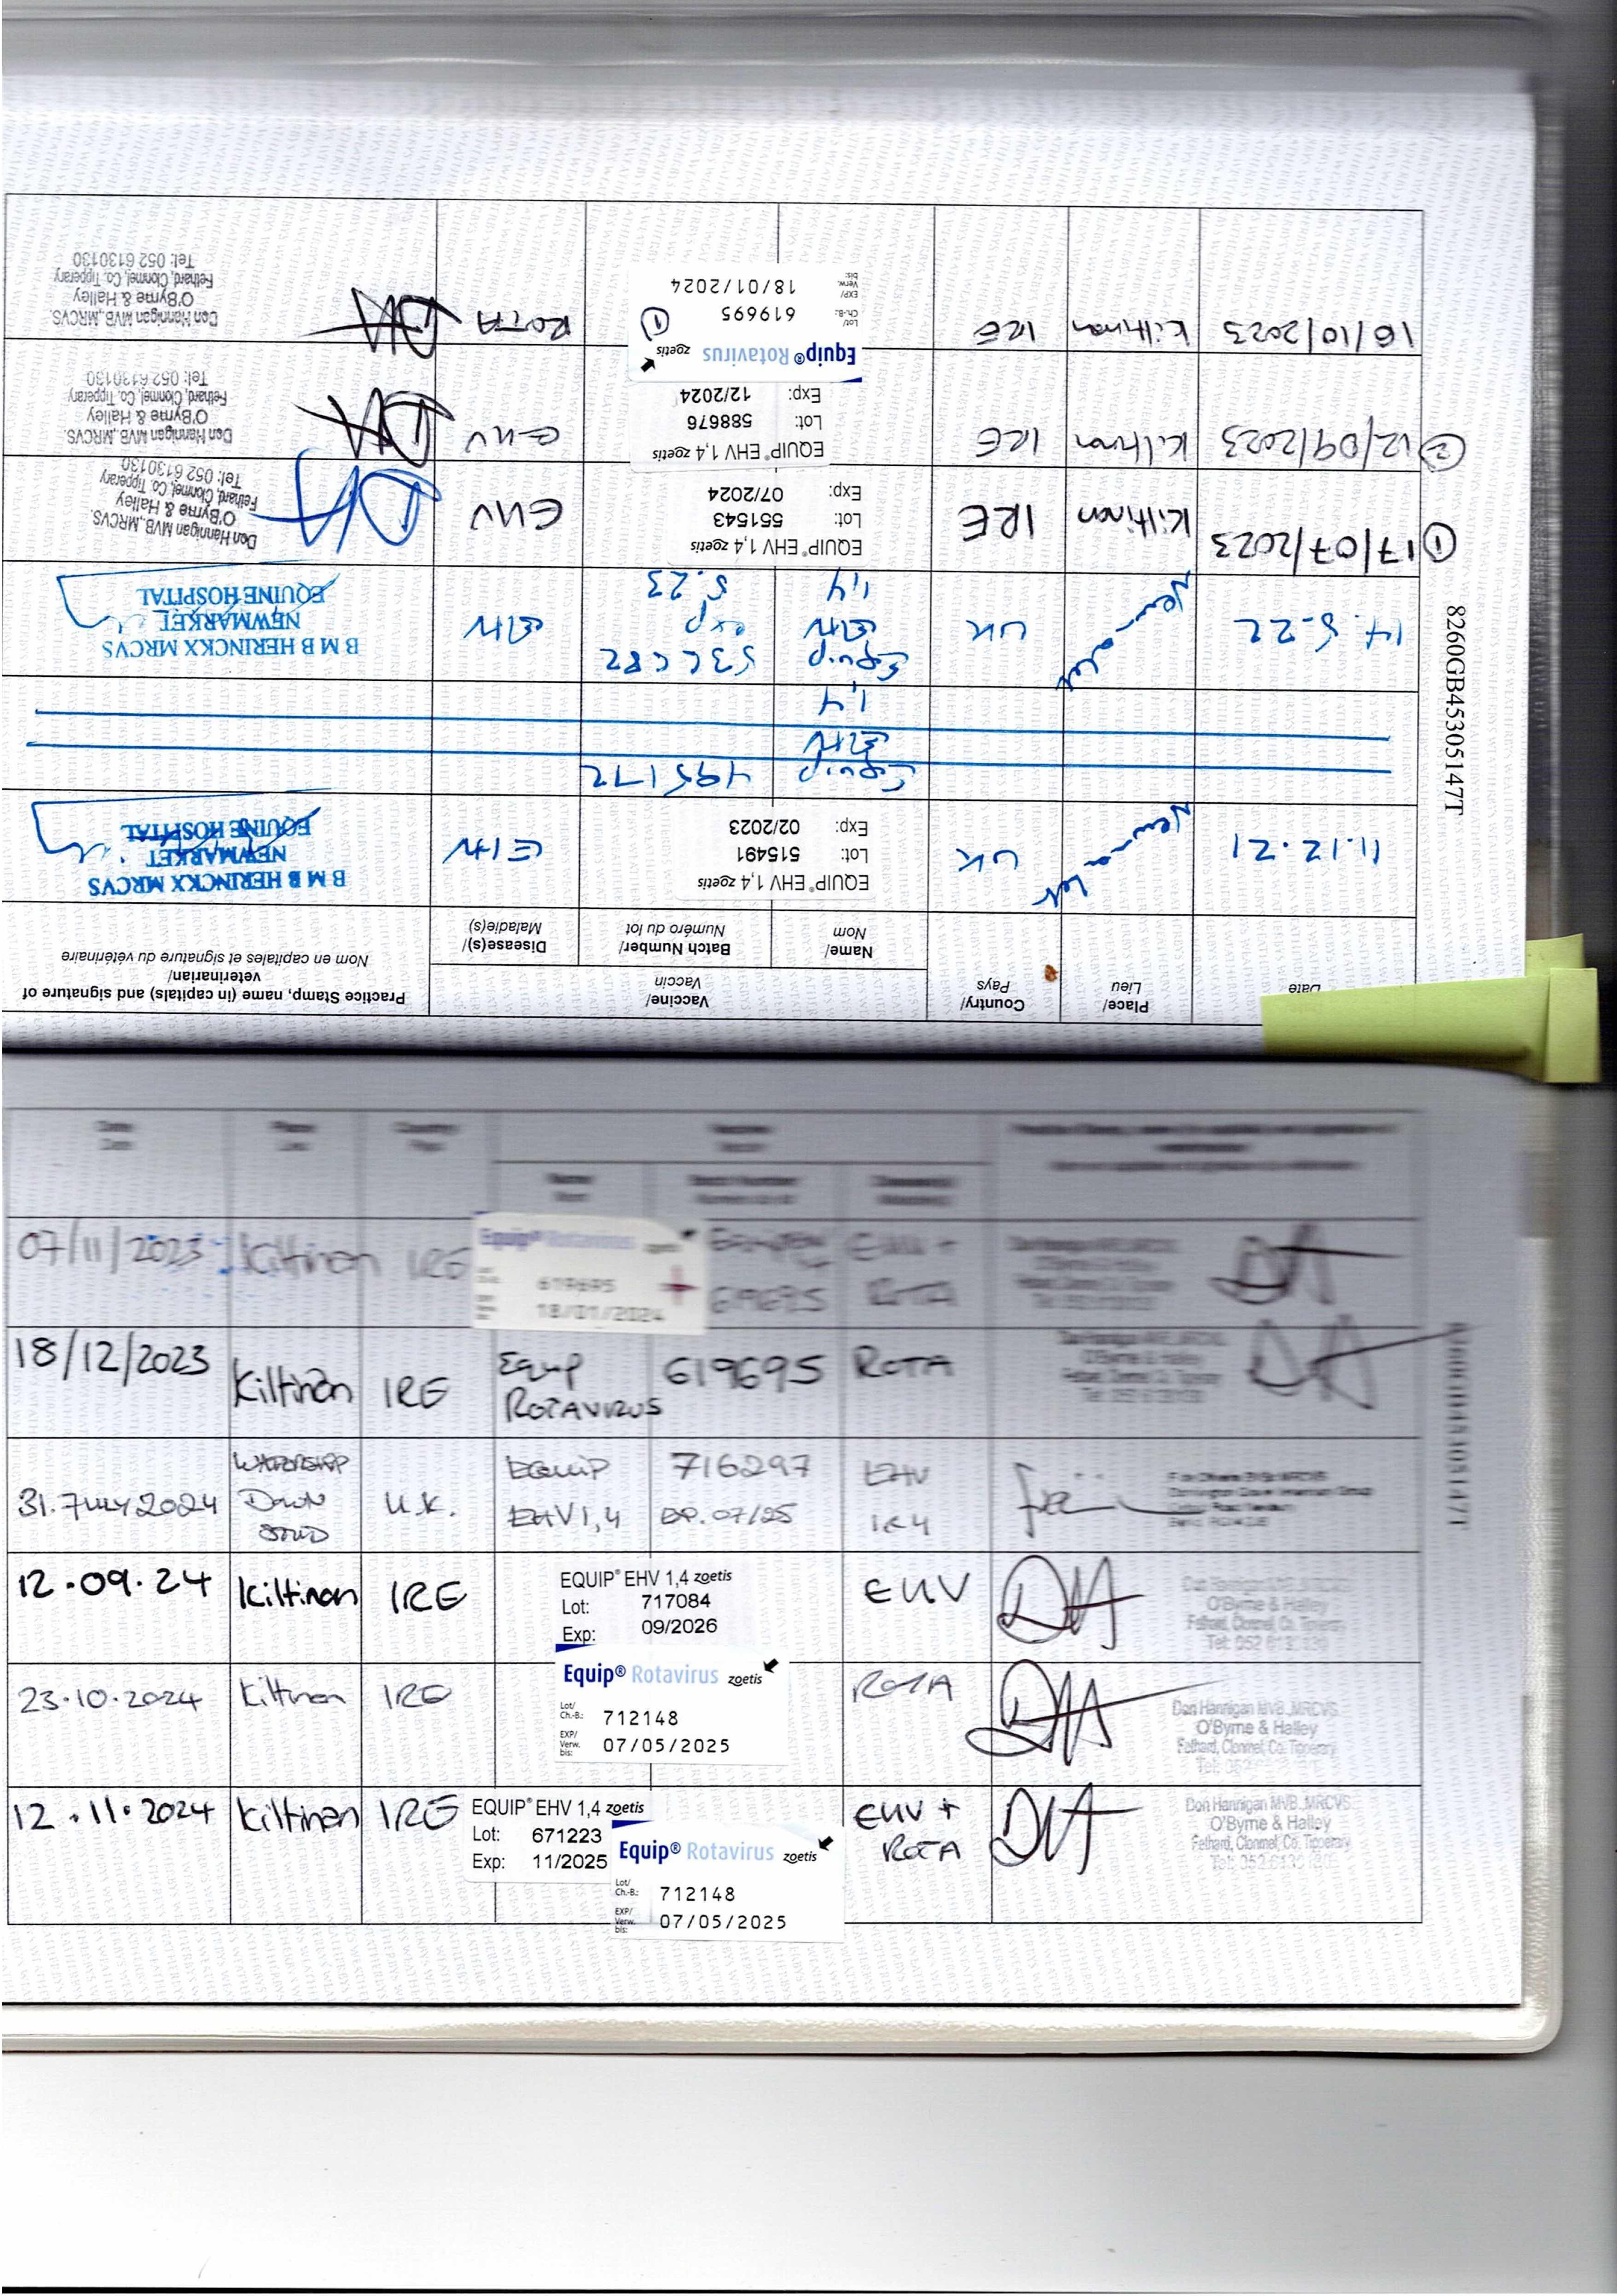 8260GB45305147T
Date
Place/
Lieu
Country/
Pays
Vaccine/
Vaccin
Name/
Nom
Batch Number/
Numéro du lot
Disease(s)/
Maladie(s)
Practice Stamp, name (in capitals) and signature of
veterinarian/
Nom en capitales et signature du vétérinaire
11.12.21
UK
EQUIP® EHV 1,4 zoetis
Lot: 515491
Exp: 02/2023
EHV
B M B HERINCKX MRCVS
NEWMARKET
EQUINE HOSPITAL
Equip
EHV
1,4
495172
14.5.22
UK
Equip
EHV
1,4
exp
5.23
EHV
B M B HERINCKX MRCVS
NEWMARKET
EQUINE HOSPITAL
① 17/07/2023
Kiltinan
IRE
EQUIP® EHV 1,4 zoetis
Lot: 551543
Exp: 07/2024
EHV
Don Hannigan MVB, MRCVS.
O'Byrne & Halley
Fethard, Clonmel, Co. Tipperary
Tel: 052 6130130
② 12/09/2023
Kiltinan
IRE
EQUIP® EHV 1,4 zoetis
Lot: 588676
Exp: 12/2024
EHV
Don Hannigan MVB, MRCVS.
O'Byrne & Halley
Fethard, Clonmel, Co. Tipperary
Tel: 052 6130130
16/10/2023
Kiltinan
IRE
Equip® Rotavirus zoetis
Lot/
Ch.-B.: 619695 ①
EXP/
Verw.
bis: 18/01/2024
ROTA
Don Hannigan MVB, MRCVS.
O'Byrne & Halley
Fethard, Clonmel, Co. Tipperary
Tel: 052 6130130
07/11/2023
Kiltinan
IRE
Equip® Rotavirus zoetis
619695
18/01/2024
619695
EHV +
ROTA
18/12/2023
Kiltinan
IRE
Equip
ROTAVIRUS
619695
ROTA
31.JULY 2024
WATERSHIP
DOWN
STUD
U.K.
EQUIP
EHV 1,4
716297
EXP. 07/25
EHV
1&4
12.09.24
Kiltinan
IRE
EQUIP® EHV 1,4 zoetis
Lot: 717084
Exp: 09/2026
EHV
O'Byrne & Halley
Fethard, Clonmel, Co. Tipperary
23.10.2024
Kiltinan
IRE
Equip® Rotavirus zoetis
Lot/
Ch.-B.: 712148
EXP/
Verw.
bis: 07/05/2025
ROTA
Don Hannigan MVB, MRCVS.
O'Byrne & Halley
Fethard, Clonmel, Co. Tipperary
12.11.2024
Kiltinan
IRE
EQUIP® EHV 1,4 zoetis
Lot: 671223
Exp: 11/2025
Equip® Rotavirus zoetis
Lot/
Ch.-B.: 712148
EXP/
Verw.
bis: 07/05/2025
EHV +
ROTA
Don Hannigan MVB, MRCVS.
O'Byrne & Halley
Fethard, Clonmel, Co. Tipperary